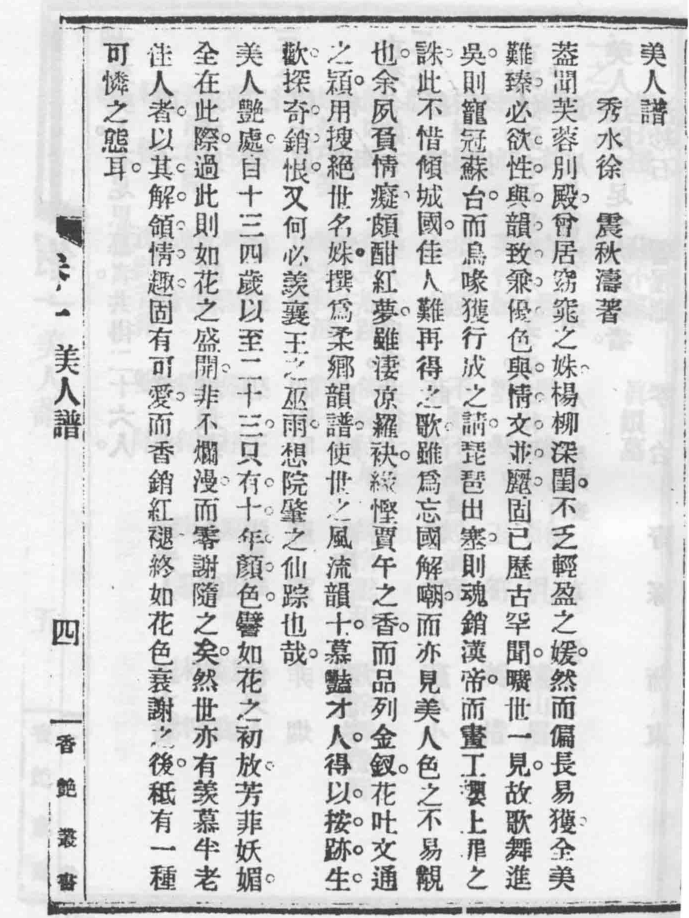 美人譜
秀水徐　震秋濤著
蓋聞芙蓉別殿曾居窈窕之姝楊柳深閨不乏輕盈之媛。然而偏長易獲。全美
難臻。必欲性與韻致兼優。色與情文並麗。固已歷古罕聞。曠世一見。故歌舞進
吳則寵冠蘇台。而烏喙獲行成之請。琵琶出塞則魂銷漢帝。而畫工攖上刑之
誅。此不惜傾城國。佳人難再得之歌。雖爲忘國解嘲。而亦見美人色之不易覯
也。余夙負情癡。頗酣紅夢。雖淒凉羅袂。緣慳賈午之香。而品列金釵。花吐文通
之穎。用搜絕世名姝。撰爲柔鄉韻譜。使世之風流韻士。慕豔才人。得以按跡生
歡。探奇銷恨。又何必羨襄王之巫雨。想院肇之仙踪也哉。
美人艷處。自十三四歲以至二十三。只有十年顏色。譬如花之初放。芳菲妖媚。
全在此際。過此則如花之盛開。非不爛漫。而零謝隨之矣。然世亦有羨慕半老
佳人者。以其解領情趣。固有可愛。而香銷紅褪。終如花色衰謝之後。秪有一種
可憐之態耳。
美人譜
四
香艷叢書